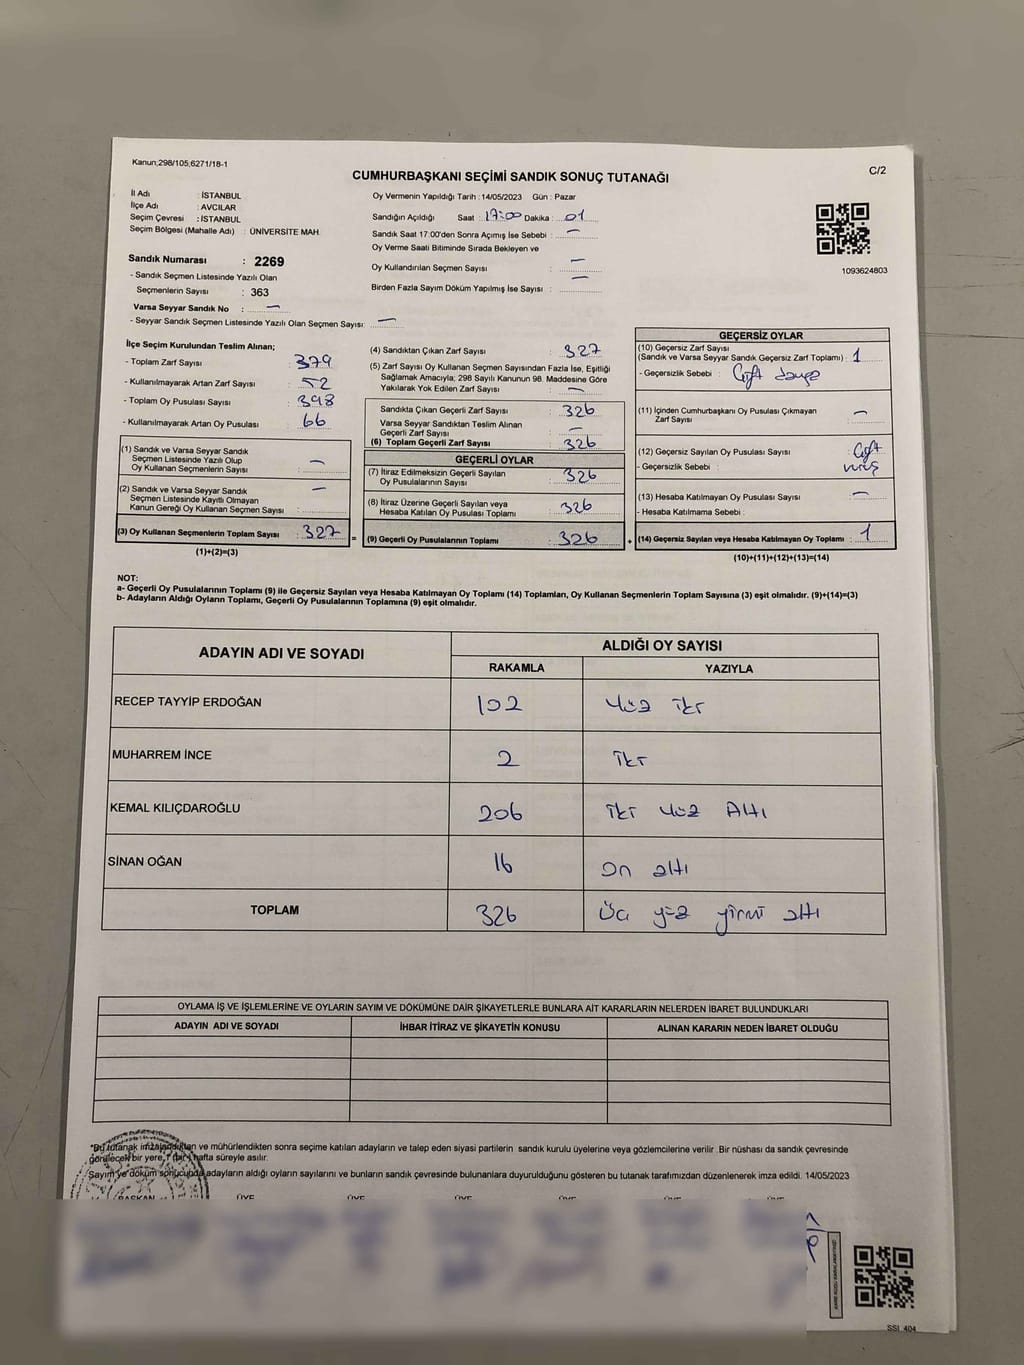 Kanun;298/105,6271/18-1
C/2
CUMHURBAŞKANI SEÇİMİ SANDIK SONUÇ TUTANAĞI
İl Adı : İSTANBUL
İlçe Adı : AVCILAR
Seçim Çevresi : İSTANBUL
Seçim Bölgesi (Mahalle Adı) : ÜNİVERSİTE MAH.
Sandık Numarası : 2269
- Sandık Seçmen Listesinde Yazılı Olan
Seçmenlerin Sayısı : 363
Varsa Seyyar Sandık No : —
- Seyyar Sandık Seçmen Listesinde Yazılı Olan Seçmen Sayısı: —
Oy Vermenin Yapıldığı Tarih : 14/05/2023 Gün : Pazar
Sandığın Açıldığı Saat : 17:00 Dakika : 01
Sandık Saat 17:00'den Sonra Açımış İse Sebebi : —
Oy Verme Saati Bitiminde Sırada Bekleyen ve
Oy Kullandırılan Seçmen Sayısı : —
Birden Fazla Sayım Döküm Yapılmış İse Sayısı : —
1093624803
İlçe Seçim Kurulundan Teslim Alınan;
- Toplam Zarf Sayısı : 379
- Kullanılmayarak Artan Zarf Sayısı : 52
- Toplam Oy Pusulası Sayısı : 398
- Kullanılmayarak Artan Oy Pusulası : 66
(1) Sandık ve Varsa Seyyar Sandık
Seçmen Listesinde Yazılı Olup
Oy Kullanan Seçmenlerin Sayısı : —
(2) Sandık ve Varsa Seyyar Sandık
Seçmen Listesinde Kayıtlı Olmayan
Kanun Gereği Oy Kullanan Seçmen Sayısı : —
(3) Oy Kullanan Seçmenlerin Toplam Sayısı : 327
(1)+(2)=(3)
(4) Sandıktan Çıkan Zarf Sayısı : 327
(5) Zarf Sayısı Oy Kullanan Seçmen Sayısından Fazla İse, Eşitliği
Sağlamak Amacıyla; 298 Sayılı Kanunun 98. Maddesine Göre
Yakılarak Yok Edilen Zarf Sayısı : —
Sandıkta Çıkan Geçerli Zarf Sayısı : 326
Varsa Seyyar Sandıktan Teslim Alınan
Geçerli Zarf Sayısı : —
(6) Toplam Geçerli Zarf Sayısı : 326
GEÇERLİ OYLAR
(7) İtiraz Edilmeksizin Geçerli Sayılan
Oy Pusulalarının Sayısı : 326
(8) İtiraz Üzerine Geçerli Sayılan veya
Hesaba Katılan Oy Pusulası Toplamı : 326
= (9) Geçerli Oy Pusulalarının Toplamı : 326
GEÇERSİZ OYLAR
(10) Geçersiz Zarf Sayısı
(Sandık ve Varsa Seyyar Sandık Geçersiz Zarf Toplamı) : 1
- Geçersizlik Sebebi : Çift
(11) İçinden Cumhurbaşkanı Oy Pusulası Çıkmayan
Zarf Sayısı : —
(12) Geçersiz Sayılan Oy Pusulası Sayısı : Çift
- Geçersizlik Sebebi :
(13) Hesaba Katılmayan Oy Pusulası Sayısı : —
- Hesaba Katılmama Sebebi :
+ (14) Geçersiz Sayılan veya Hesaba Katılmayan Oy Toplamı : 1
(10)+(11)+(12)+(13)=(14)
NOT:
a- Geçerli Oy Pusulalarının Toplamı (9) ile Geçersiz Sayılan veya Hesaba Katılmayan Oy Toplamı (14) Toplamları, Oy Kullanan Seçmenlerin Toplam Sayısına (3) eşit olmalıdır. (9)+(14)=(3)
b- Adayların Aldığı Oyların Toplamı, Geçerli Oy Pusulalarının Toplamına (9) eşit olmalıdır.
ADAYIN ADI VE SOYADI ALDIĞI OY SAYISI
RAKAMLA YAZIYLA
RECEP TAYYİP ERDOĞAN 102 Yüz iki
MUHARREM İNCE 2 iki
KEMAL KILIÇDAROĞLU 206 iki Yüz Altı
SİNAN OĞAN 16 on altı
TOPLAM 326 Üç yüz yirmi altı
OYLAMA İŞ VE İŞLEMLERİNE VE OYLARIN SAYIM VE DÖKÜMÜNE DAİR ŞİKAYETLERLE BUNLARA AİT KARARLARIN NELERDEN İBARET BULUNDUKLARI
ADAYIN ADI VE SOYADI İHBAR İTİRAZ VE ŞİKAYETİN KONUSU ALINAN KARARIN NEDEN İBARET OLDUĞU
*Bu tutanak imzalandıktan ve mühürlendikten sonra seçime katılan adayların ve talep eden siyasi partilerin sandık kurulu üyelerine veya gözlemcilerine verilir .Bir nüshası da sandık çevresinde
görülecek bir yere, 1 (bir) hafta süreyle asılır.
Sayım ve döküm sonucunda adayların aldığı oyların sayılarını ve bunların sandık çevresinde bulunanlara duyurulduğunu gösteren bu tutanak tarafımızdan düzenlenerek imza edildi. 14/05/2023
BAŞKAN ÜYE ÜYE ÜYE ÜYE ÜYE ÜYE
SSI_404